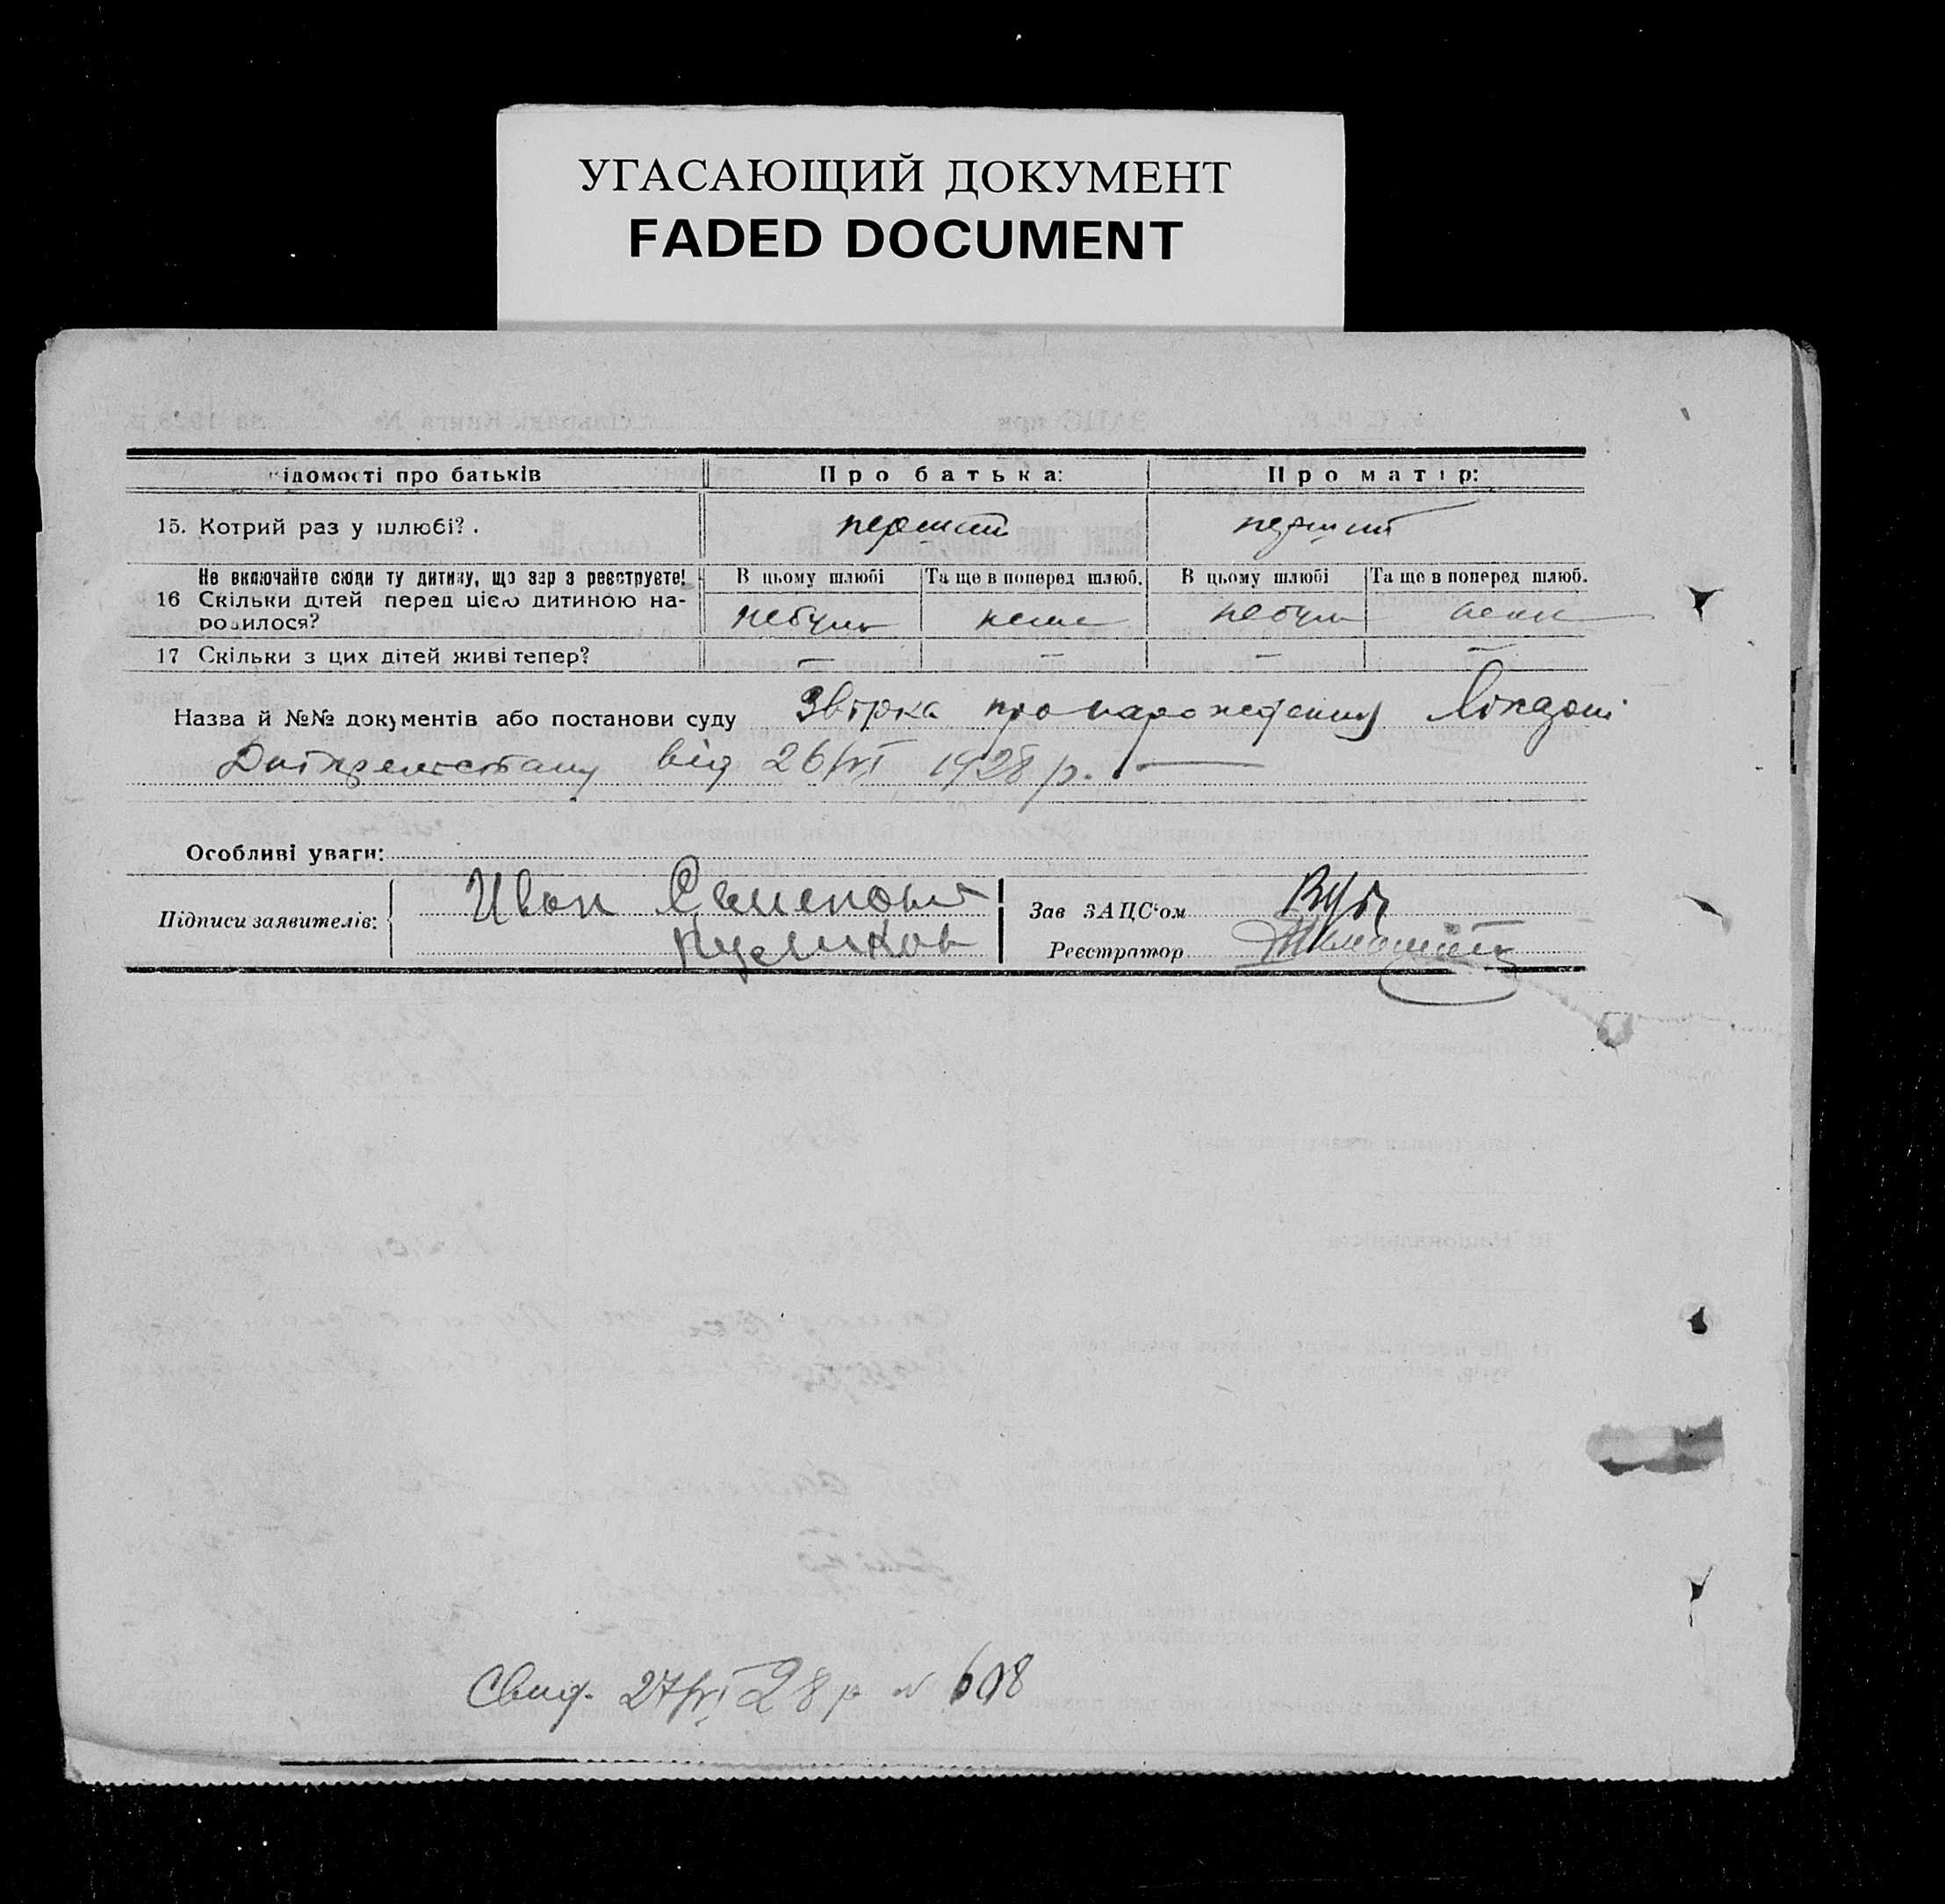 УГАСАЮЩИЙ ДОКУМЕНТ
FADED DOCUMENT
ідомості про батьків Про батька: Про матір:
15. Котрий раз у шлюбі? . перший перший
Не включайте сюди ту дитину, що зар з реєструєте! В цьому шлюбі Та ще в поперед шлюб. В цьому шлюбі Та ще в поперед шлюб.
16 Скільки дітей перед цією дитиною на-
родилося? небуло небуло
17 Скільки з цих дітей живі тепер? — — — —
Назва й №№ документів або постанови суду
від 26/VI 1928 р.
Особливі уваги:
Підписи заявителів: Иван Семенович Зав ЗАЦС'ом
Куликов Реєстратор
Свид. 27/VI 28 р № 608